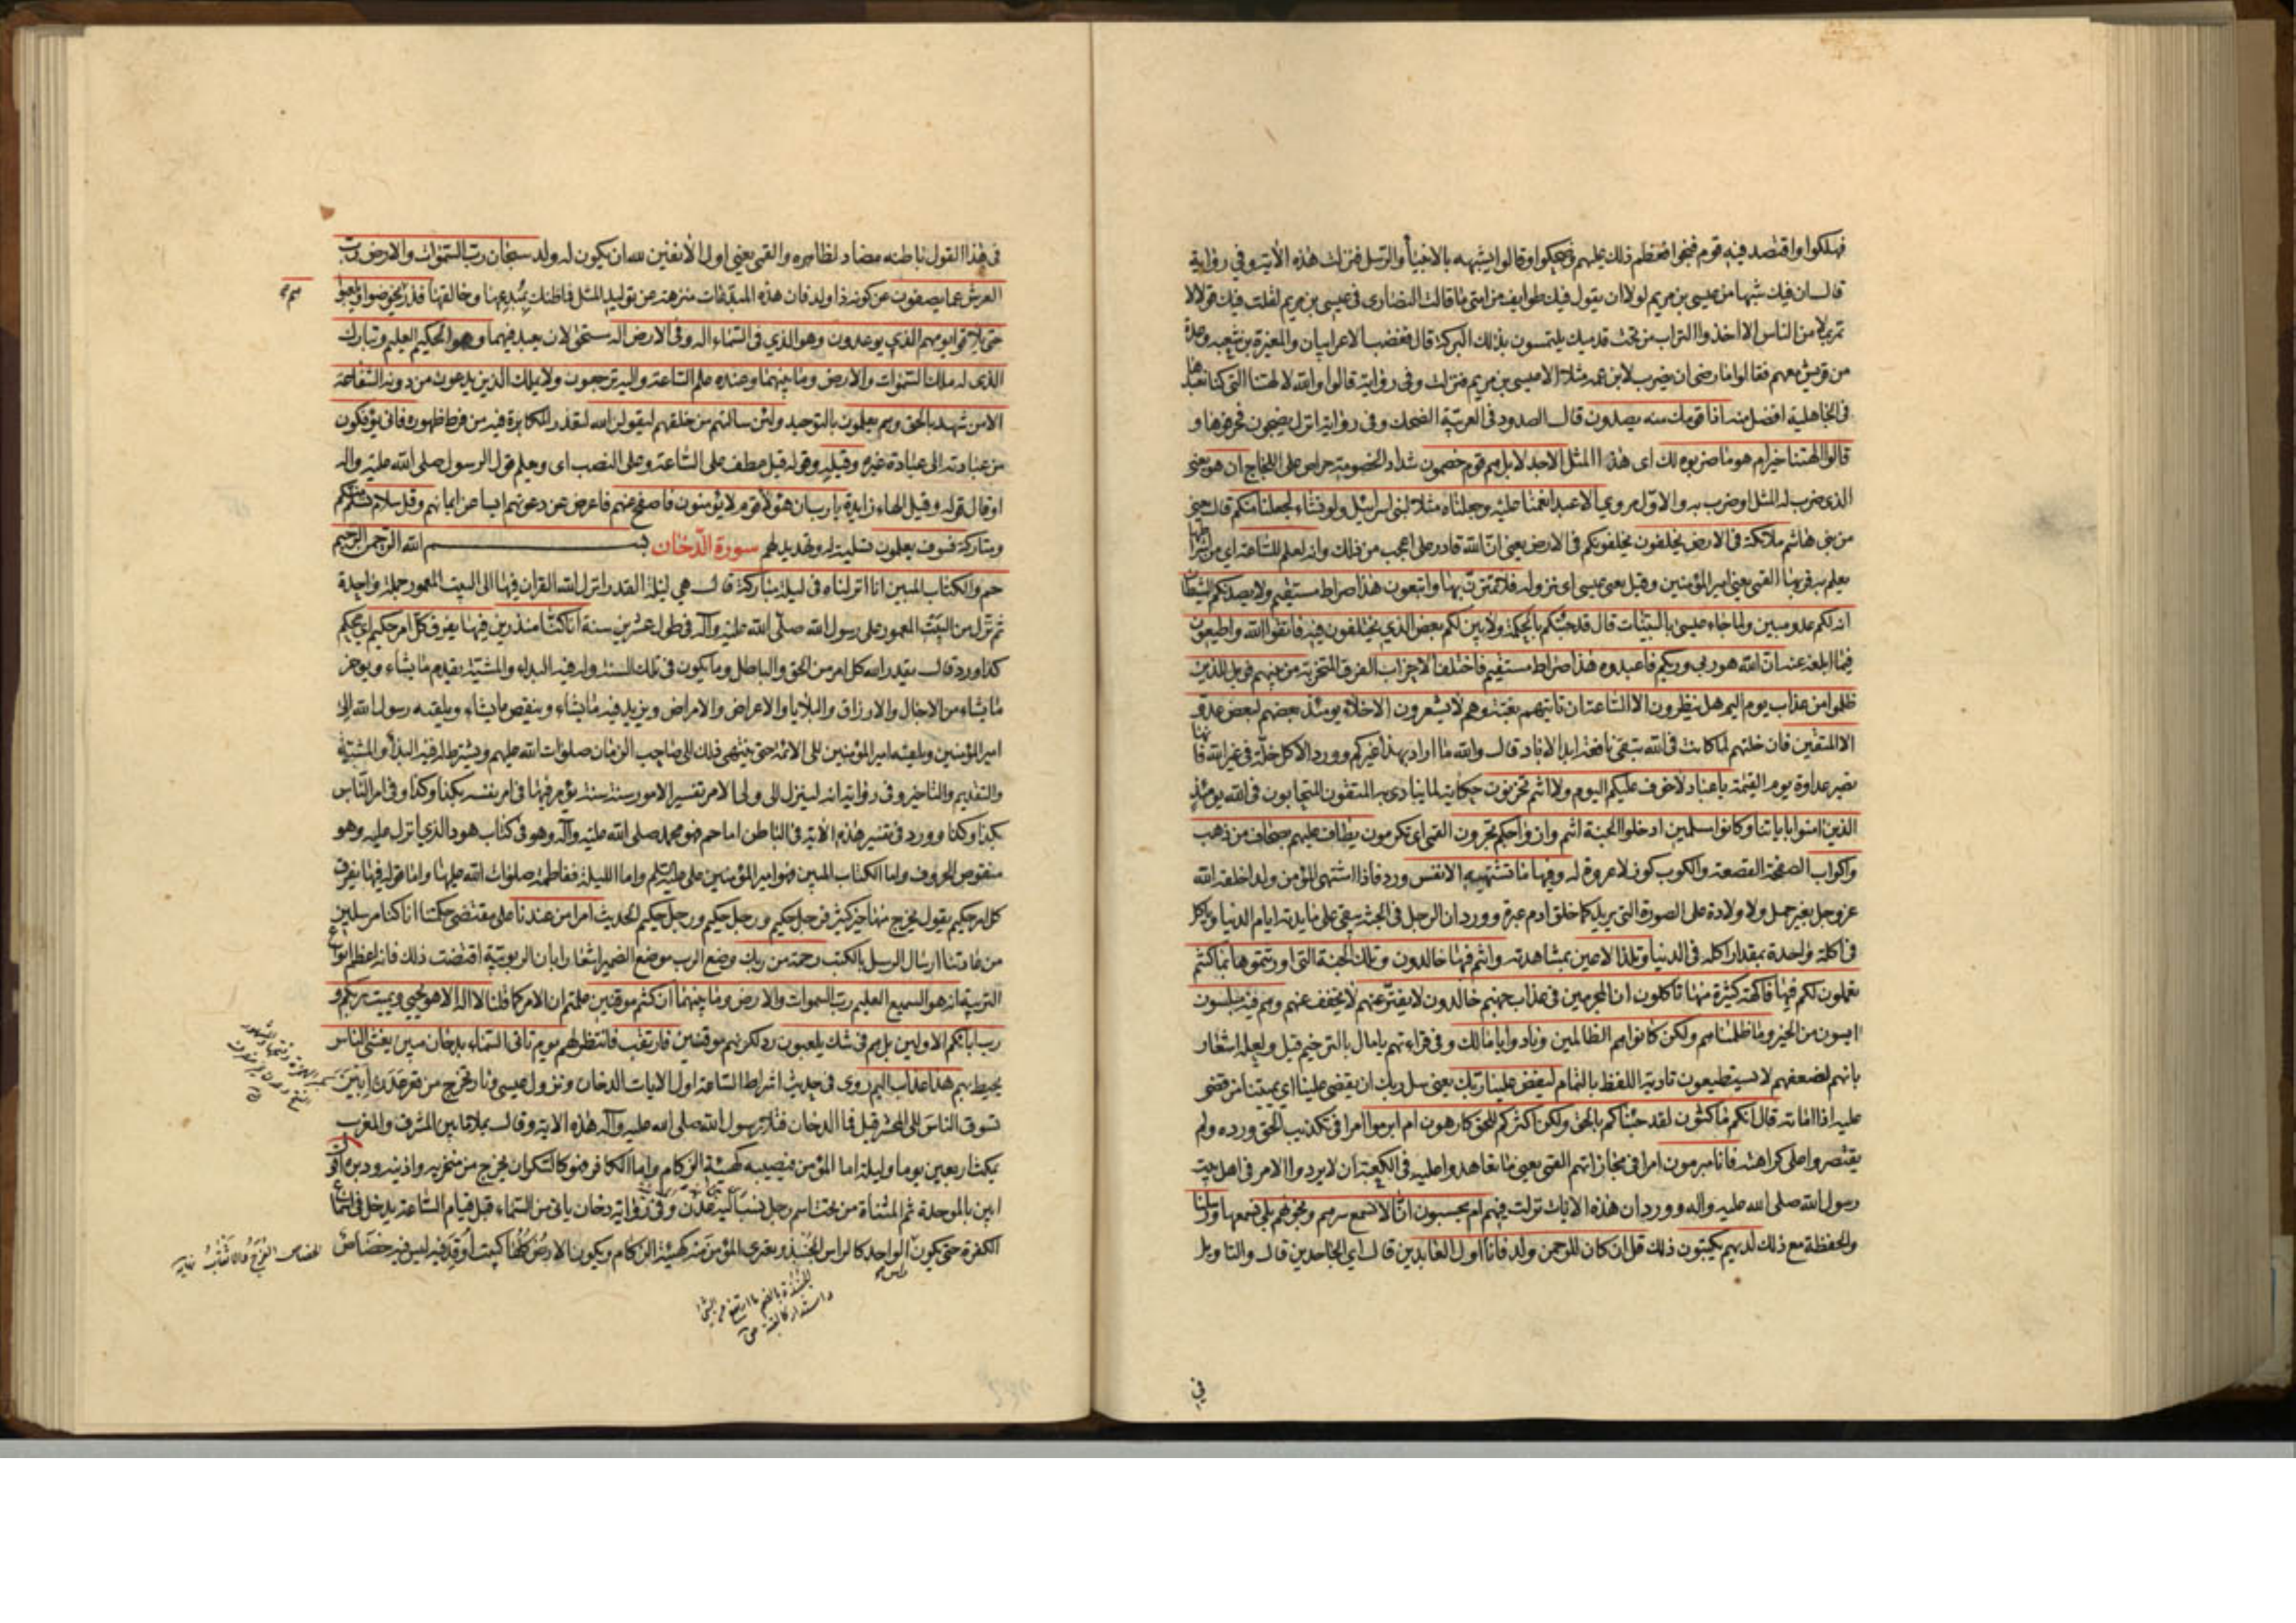 فهلكوا واقتصد فيه قوم فنجوا فعظم ذلك عليهم فضحكوا وقالوا يشبهه بالانبياء والرسل فنزلت هذه الاية وفي رواية
قال ان فيك شبها من عيسى بن مريم لولا ان يقول فيك طوايف من امتى ما قالت النصارى فى عيسى بن مريم لقلت فيك قولا لا
تمر بملا من الناس الا اخذوا التراب من تحت قدميك يلتمسون بذلك البركة قال فغضب الاعرابيان والمغيرة بن شعبه وعدة
من قريش معهم فقالوا ما رضى ان يضرب لابن عمه مثلا الا عيسى بن مريم فنزلت وفى رواية قالوا والله لالهتنا التى كنا نعبدها
فى الجاهلية افضل منه اذا قومك منه يصدون قال الصدود فى العربية الضحك وفى رواية انزل يضجون فحرفوها و
قالوا الهتنا خير ام هو ما ضربوه لك اى هذا المثل الا جدلا بل هم قوم خصمون شداد الخصومة حراص على اللجاج ان هو يعنى
الذى ضرب له المثل او ضرب به والاول مروى الا عبد انعمنا عليه وجعلناه مثلا لبنى اسرائيل ولو نشاء لجعلنا منكم قال يعنى
من بنى هاشم ملائكة فى الارض يخلفون يخلفونكم فى الارض يعنى ان الله قادر على اعجب من ذلك وانه لعلم للساعة اى من اشراطها
يعلم به قربها القمى يعنى امير المؤمنين وقيل يعنى عيسى اى نزوله فلا تمترن بها واتبعون هذا صراط مستقيم ولا يصدنكم الشيطان
انه لكم عدو مبين ولما جاء عيسى بالبينات قال قد جئتكم بالحكمة ولابين لكم بعض الذى تختلفون فيه فاتقوا الله واطيعون
فيما ابلغه عنه ان الله هو ربى وربكم فاعبدوه هذا صراط مستقيم فاختلف الاحزاب الفرق المتحزبة من بينهم فويل للذين
ظلموا من عذاب يوم اليم هل ينظرون الا الساعة ان تاتيهم بغتة وهم لا يشعرون الاخلاء يومئذ بعضهم لبعض عدو
الا المتقين فان خلتهم لما كانت فى الله تبقى نافعة ابد الاباد قال والله ما اراد بهذا غيركم وورد الا كل خلة فى غير الله فانها
تصير عداوة يوم القيمة يا عباد لا خوف عليكم اليوم ولا انتم تحزنون حكاية لما ينادى به المتقون المتحابون فى الله يومئذ
الذين امنوا باياتنا وكانوا مسلمين ادخلوا الجنة انتم وازواجكم تحبرون القمى اى تكرمون يطاف عليهم بصحاف من ذهب
واكواب الصحفة القصعة والكوب كوز لا عروة له وفيها ما تشتهيه الانفس ورد فاذا اشتهى المؤمن ولدا خلقه الله
عز وجل بغير حمل ولا ولادة على الصورة التى يريد كما خلق ادم عبرة وورد ان الرجل فى الجنة يبقى على مائدته ايام الدنيا وياكل
فى اكلة واحدة بمقدار اكله فى الدنيا وتلذ الاعين بمشاهدته وانتم فيها خالدون وتلك الجنة التى اورثتموها بما كنتم
تعملون لكم فيها فاكهة كثيرة منها تاكلون ان المجرمين فى عذاب جهنم خالدون لا يفتر عنهم لا يخفف عنهم وهم فيه مبلسون
ايسون من الخير وما ظلمناهم ولكن كانوا هم الظالمين ونادوا يا مالك وفى قراءتهم يا مال بالترخيم قيل ولعله اشعار
بانهم لضعفهم لا يستطيعون تادية اللفظ بالتمام ليقض علينا ربك يعنى سل ربك ان يقضى علينا اى يميتنا من قضى
عليه اذا اماته قال انكم ماكثون لقد جئناكم بالحق ولكن اكثركم للحق كارهون ام ابرموا امرا فى تكذيب الحق ورده ولم
يقتصروا على كراهته فانا مبرمون امرا فى مجازاتهم القمى يعنى ما تعاهدوا عليه فى الكعبة ان لا يردوا الامر فى اهل بيت
رسول الله صلى الله عليه واله وورد ان هذه الايات نزلت فيهم ام يحسبون انا لا نسمع سرهم ونجويهم بلى نسمعها ورسلنا
والحفظة مع ذلك لديهم يكتبون ذلك قل ان كان للرحمن ولد فانا اول العابدين قال اى الجاحدين قال والتاويل
في
فى هذا القول باطنه مضاد لظاهره والقمى يعنى اول الانفين لله ان يكون له ولد سبحان رب السموات والارض رب
العرش عما يصفون عن كونه ذا ولد فان هذه المبدعات منزهة عن توليد المثل فما ظنك بمبدعها وخالقها فذرهم يخوضوا ويلعبوا
حتى يلاقوا يومهم الذى يوعدون وهو الذى فى السماء اله وفى الارض اله مستحق لان يعبد فيهما وهو الحكيم العليم وتبارك
الذى له ملك السموات والارض وما بينهما وعنده علم الساعة واليه ترجعون ولا يملك الذين يدعون من دونه الشفاعة
الا من شهد بالحق وهم يعلمون بالتوحيد ولئن سالتهم من خلقهم ليقولن الله لتعذر المكابرة فيه من فرط ظهوره فانى يؤفكون
من عبادته الى عبادة غيره وقيله وقوله قيل عطف على الساعة وعلى النصب اى ويعلم قول الرسول صلى الله عليه واله
او قال قوله وقيل الهاء زايدة يا رب ان هؤلاء قوم لا يؤمنون فاصفح عنهم فاعرض عن دعوتهم ايسا عن ايمانهم وقل سلام تسلم منكم
ومتاركة فسوف يعلمون تسلية له وتهديد لهم سورة الدخان بسم الله الرحمن الرحيم
حم والكتاب المبين انا انزلناه فى ليلة مباركة قال هى ليلة القدر انزل الله القران فيها الى البيت المعمور جملة واحدة
ثم نزل من البيت المعمور على رسول الله صلى الله عليه وآله فى طول عشرين سنة انا كنا منذرين فيها يفرق كل امر حكيم اى محكم
كذا ورد قال يقدر الله كل امر من الحق والباطل وما يكون فى تلك السنة وله فيه البداء والمشية يقدم ما يشاء ويوخر
ما يشاء من الاجال والارزاق والبلايا والاعراض والامراض ويزيد فيه ما يشاء وينقص ما يشاء ويلقيه رسول الله الى
امير المؤمنين ويلقيه امير المؤمنين الى الائمة حتى ينتهى ذلك الى صاحب الزمان صلوات الله عليهم ويشترط له فيه البداء والمشية
والتقديم والتاخير وفى رواية انه لينزل الى ولى الامر تفسير الامور سنة سنة يؤمر فيها فى امر نفسه بكذا وكذا وفى امر الناس
بكذا وكذا وورد فى تفسير هذه الاية فى الباطن اما حم فهو محمد صلى الله عليه وآله وهو فى كتاب هود الذى انزل عليه وهو
منقوص الحروف واما الكتاب المبين فهو امير المؤمنين على عليه السلم واما الليلة ففاطمة صلوات الله عليها واما قوله فيها يفرق
كل امر حكيم يقول يخرج منها خير كثير فرجل حكيم ورجل حكيم ورجل حكيم الحديث امرا من عندنا على مقتضى حكمتنا انا كنا مرسلين
من عادتنا ارسال الرسل بالكتب رحمة من ربك وضع الرب موضع الضمير اشعارا بان الربوبية اقتضت ذلك فانه اعظم انواع
التربية انه هو السميع العليم رب السموات والارض وما بينهما ان كنتم موقنين علمتم ان الامر كما قلنا لا اله الا هو يحيى ويميت ربكم و
رب ابائكم الاولين بل هم فى شك يلعبون رد لكونهم موقنين فارتقب فانتظر لهم يوم تاتى السماء بدخان مبين يغشى الناس
يحيط بهم هذا عذاب اليم روى فى حديث اشراط الساعة اول الايات الدخان ونزول عيسى ونار تخرج من قعر عدن ابين
تسوق الناس الى المحشر قيل فما الدخان فتلا رسول الله صلى الله عليه وآله هذه الاية وقال يملا ما بين المشرق والمغرب
يمكث اربعين يوما وليلة اما المؤمن فيصيبه كهيئة الزكام واما الكافر فهو كالسكران يخرج من منخريه واذنيه ودبره
ابين بالموحدة ثم المثناة من تحت اسم رجل نسب اليه عدن وفى رواية دخان ياتى من السماء قبل قيام الساعة يدخل فى اسماع
الكفرة حتى يكون الواحد كالراس الحنيذ ويعترى المؤمن منه كهيئة الزكام ويكون الارض كلها كبيت اوقد فيه ليس فيه خصاص